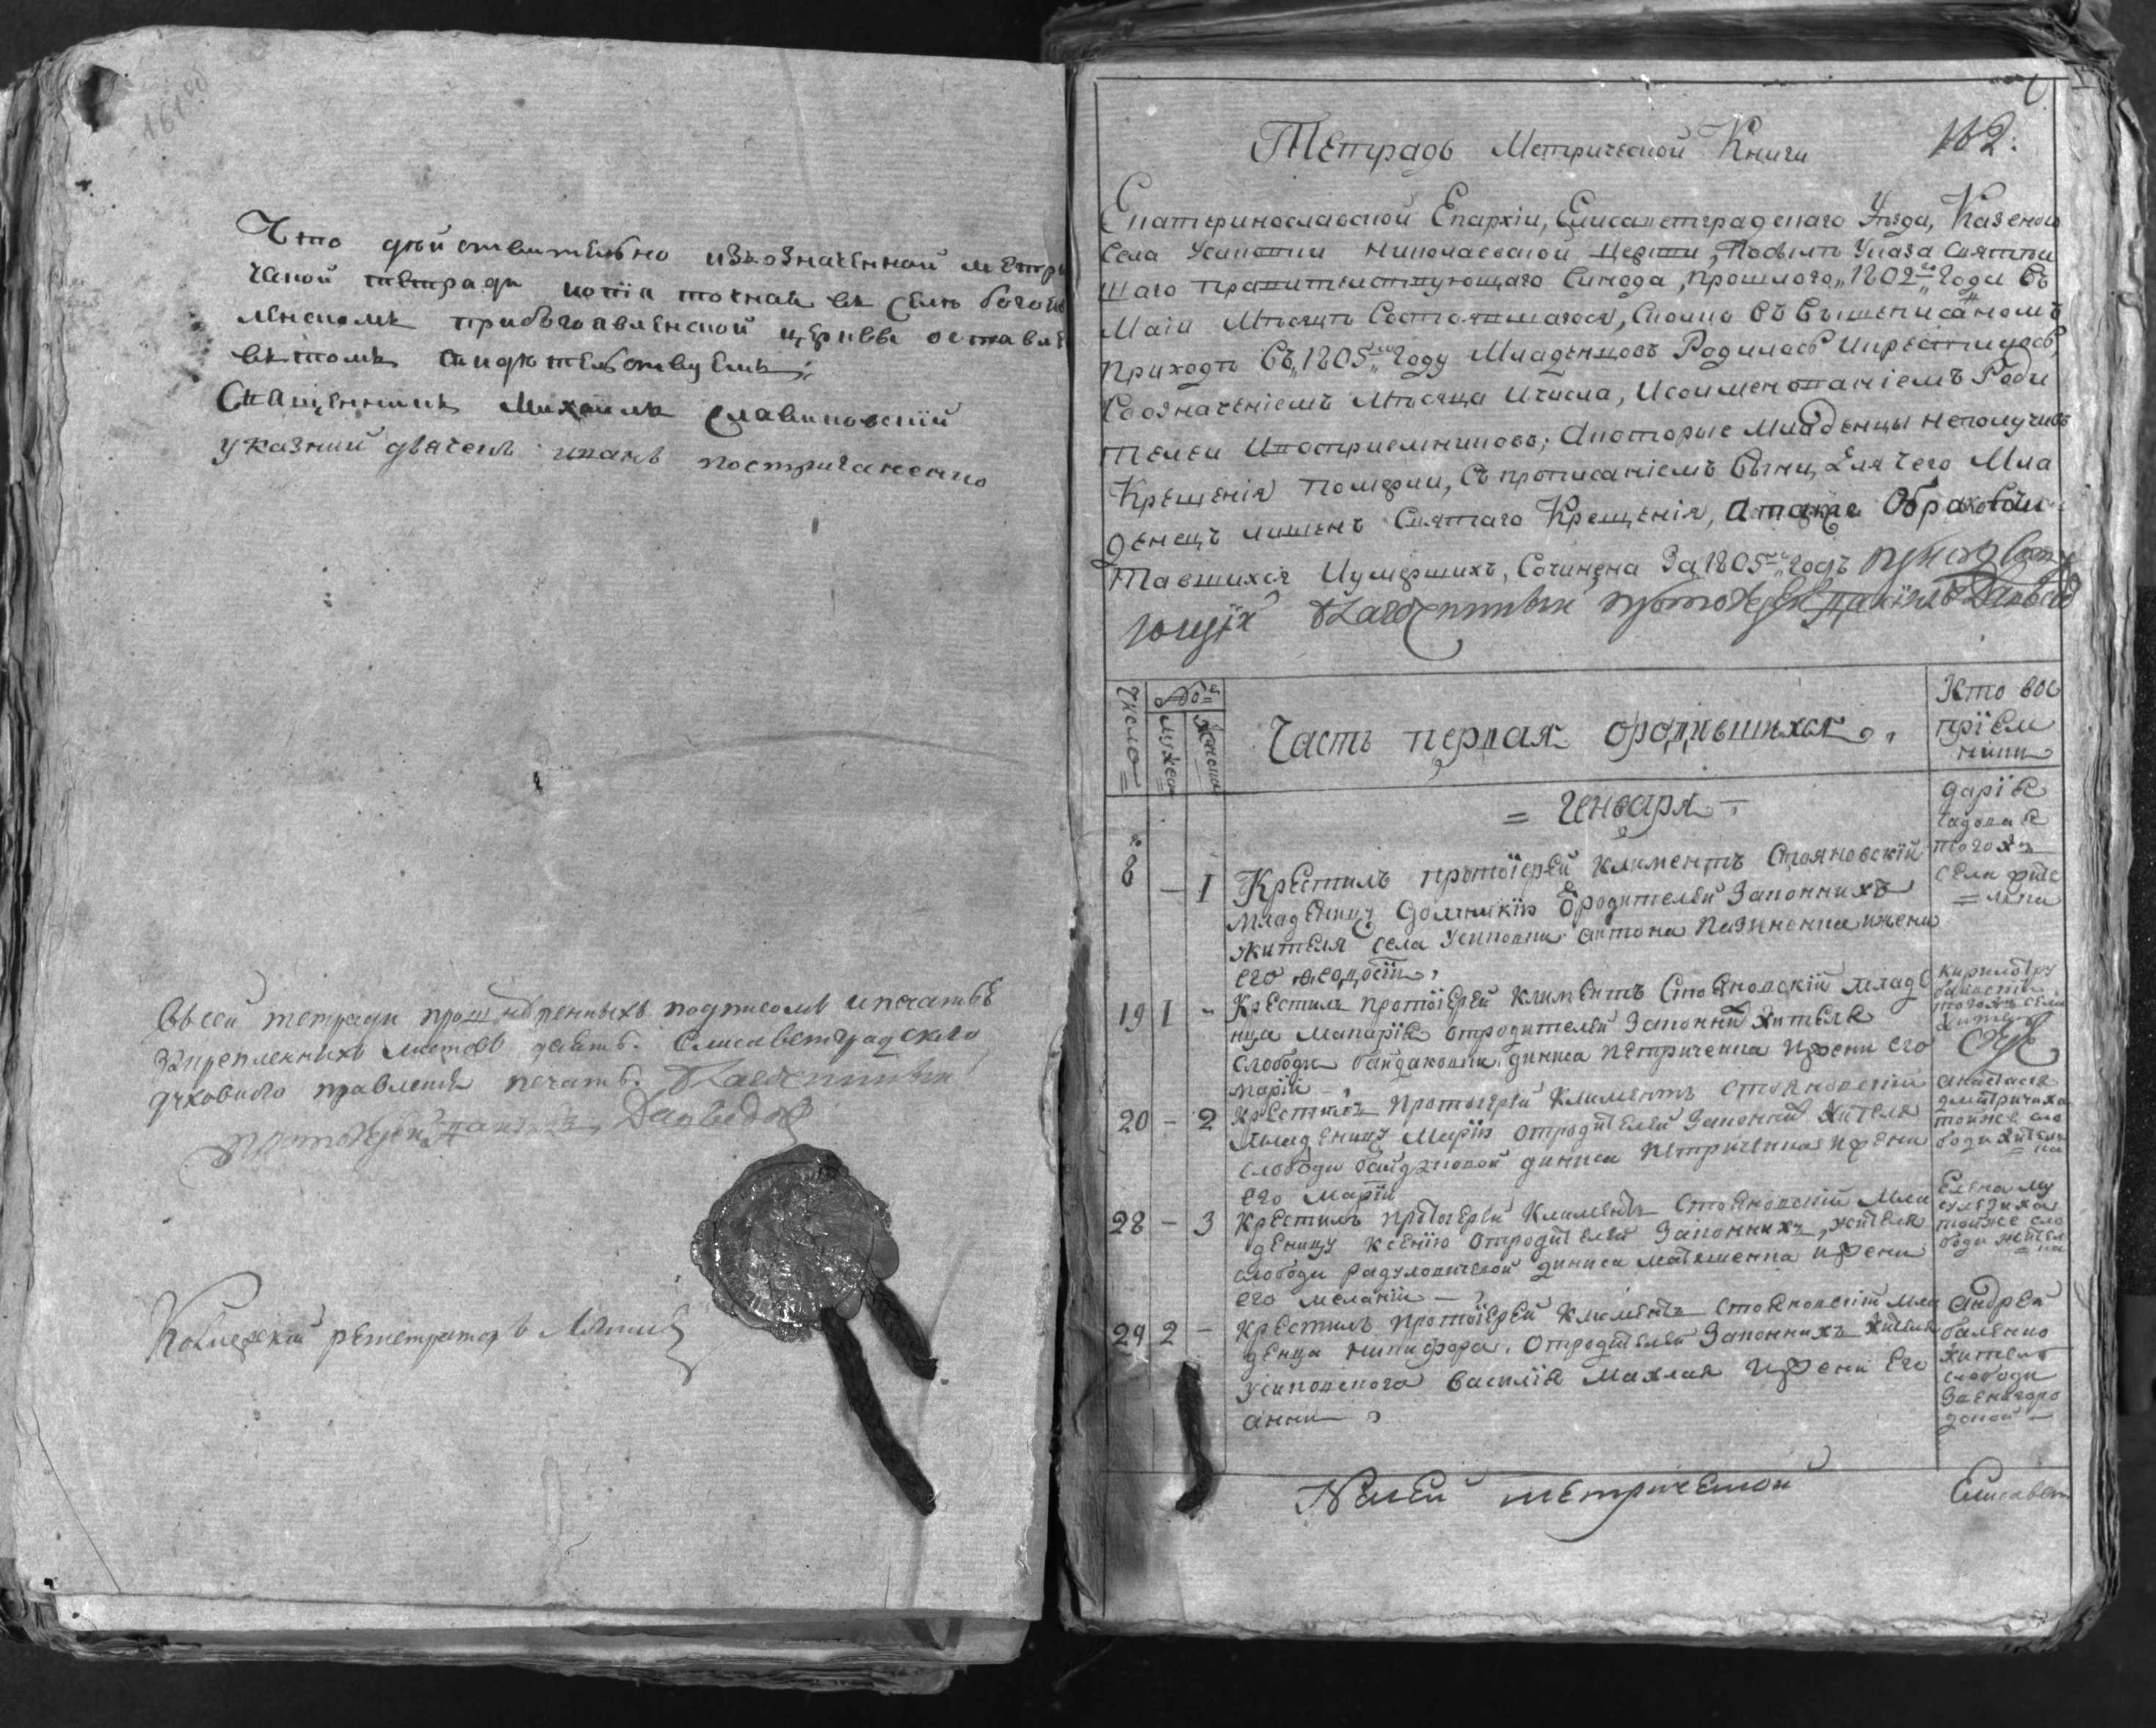 Что действительно изъозначенной метри
ческой тетради копiя точная въ селе богояв
ленскомъ прибогоявленской церкве оставле
въ томъ свидетельствуемъ
Священникъ Михаилъ Славиновскiй
указний дьячекъ иванъ постригаченко
Въ сей тетради прошнуренныхъ подписомъ ипечатью
закрепленнихъ листовъ девять. Елисаветградского
духовного правления печать. Благочинный
протоиерей Даниилъ Давидов
Колежский регистратор
182.
Тетрадь Метрической Книги
Екатеринославской Епархiи, Елисаветградскаго Уезда, Казеного
села Усиповки николаевской церкви, Посиле Указа Святей
шаго правителствующаго Синода, прошлого 1802го Года въ
Маiи Месяце Состоявшагося, Сколко въ вышеписаномъ
приходе въ 1805м Году Младенцовъ Родилось Икрестилось,
Соозначенiемъ Месяца Ичисла, Исоименованiемъ Роди
телей Ивосприемниковъ; Акоторые Младенцы неполучивъ
Крещенiя Померли, съ прописанiемъ Вины, Для чего Мла
денецъ лишенъ Святаго Крещенiя, Атакже Обраховсоче
тавшихся Иумершихъ, Сочинена За 1805й Годъ
Благочинный протоиерей Даниилъ Давидов
Число
No
мужеска
женска
Часть первая ородившихся.
Кто вос
прïем
ники
= Генваря -
8
- 1
Крестилъ протоïерей климентъ Стояновскiй
младеницу домникiю отродителей Законнихъ
жителя села Усиповки антона Пазиненка ижени
его феодосïи
дарïя
садовая
тогожъ
села жите
= лька
19 1 -
Крестилъ протоïерей климентъ Стояновскiй младе
нца макарïя отродителей Законни жителя
слободи байдаковки диниса петриченка ижени его
марiи
кирило
тогожъ села
20 - 2
крестилъ протоïерей климентъ стояновскiй
младеницу Марiю отродителей Законни жителя
слободи байдаковой диниса петриченка ижени
его марïи
анастасiя
дмитричиха
тойже сло
боди жител
ка
28 - 3
Крестилъ протоïерей климентъ стояновскiй мла
деницу ксенiю отродителей Законнихъ, жителя
слободи радуловической диниса матяшенка ижени
его меланiи
Елена му
тойже сло
боди жител
= ка
29 2 -
Крестилъ протоïерей климентъ стояновскiй мла
денца никифора. отродителей Законнихъ жителя
усиповского василiя махлая ижени его
анни
андрей
баленко
жителъ
слободи
Ксей метрической
Елисавет